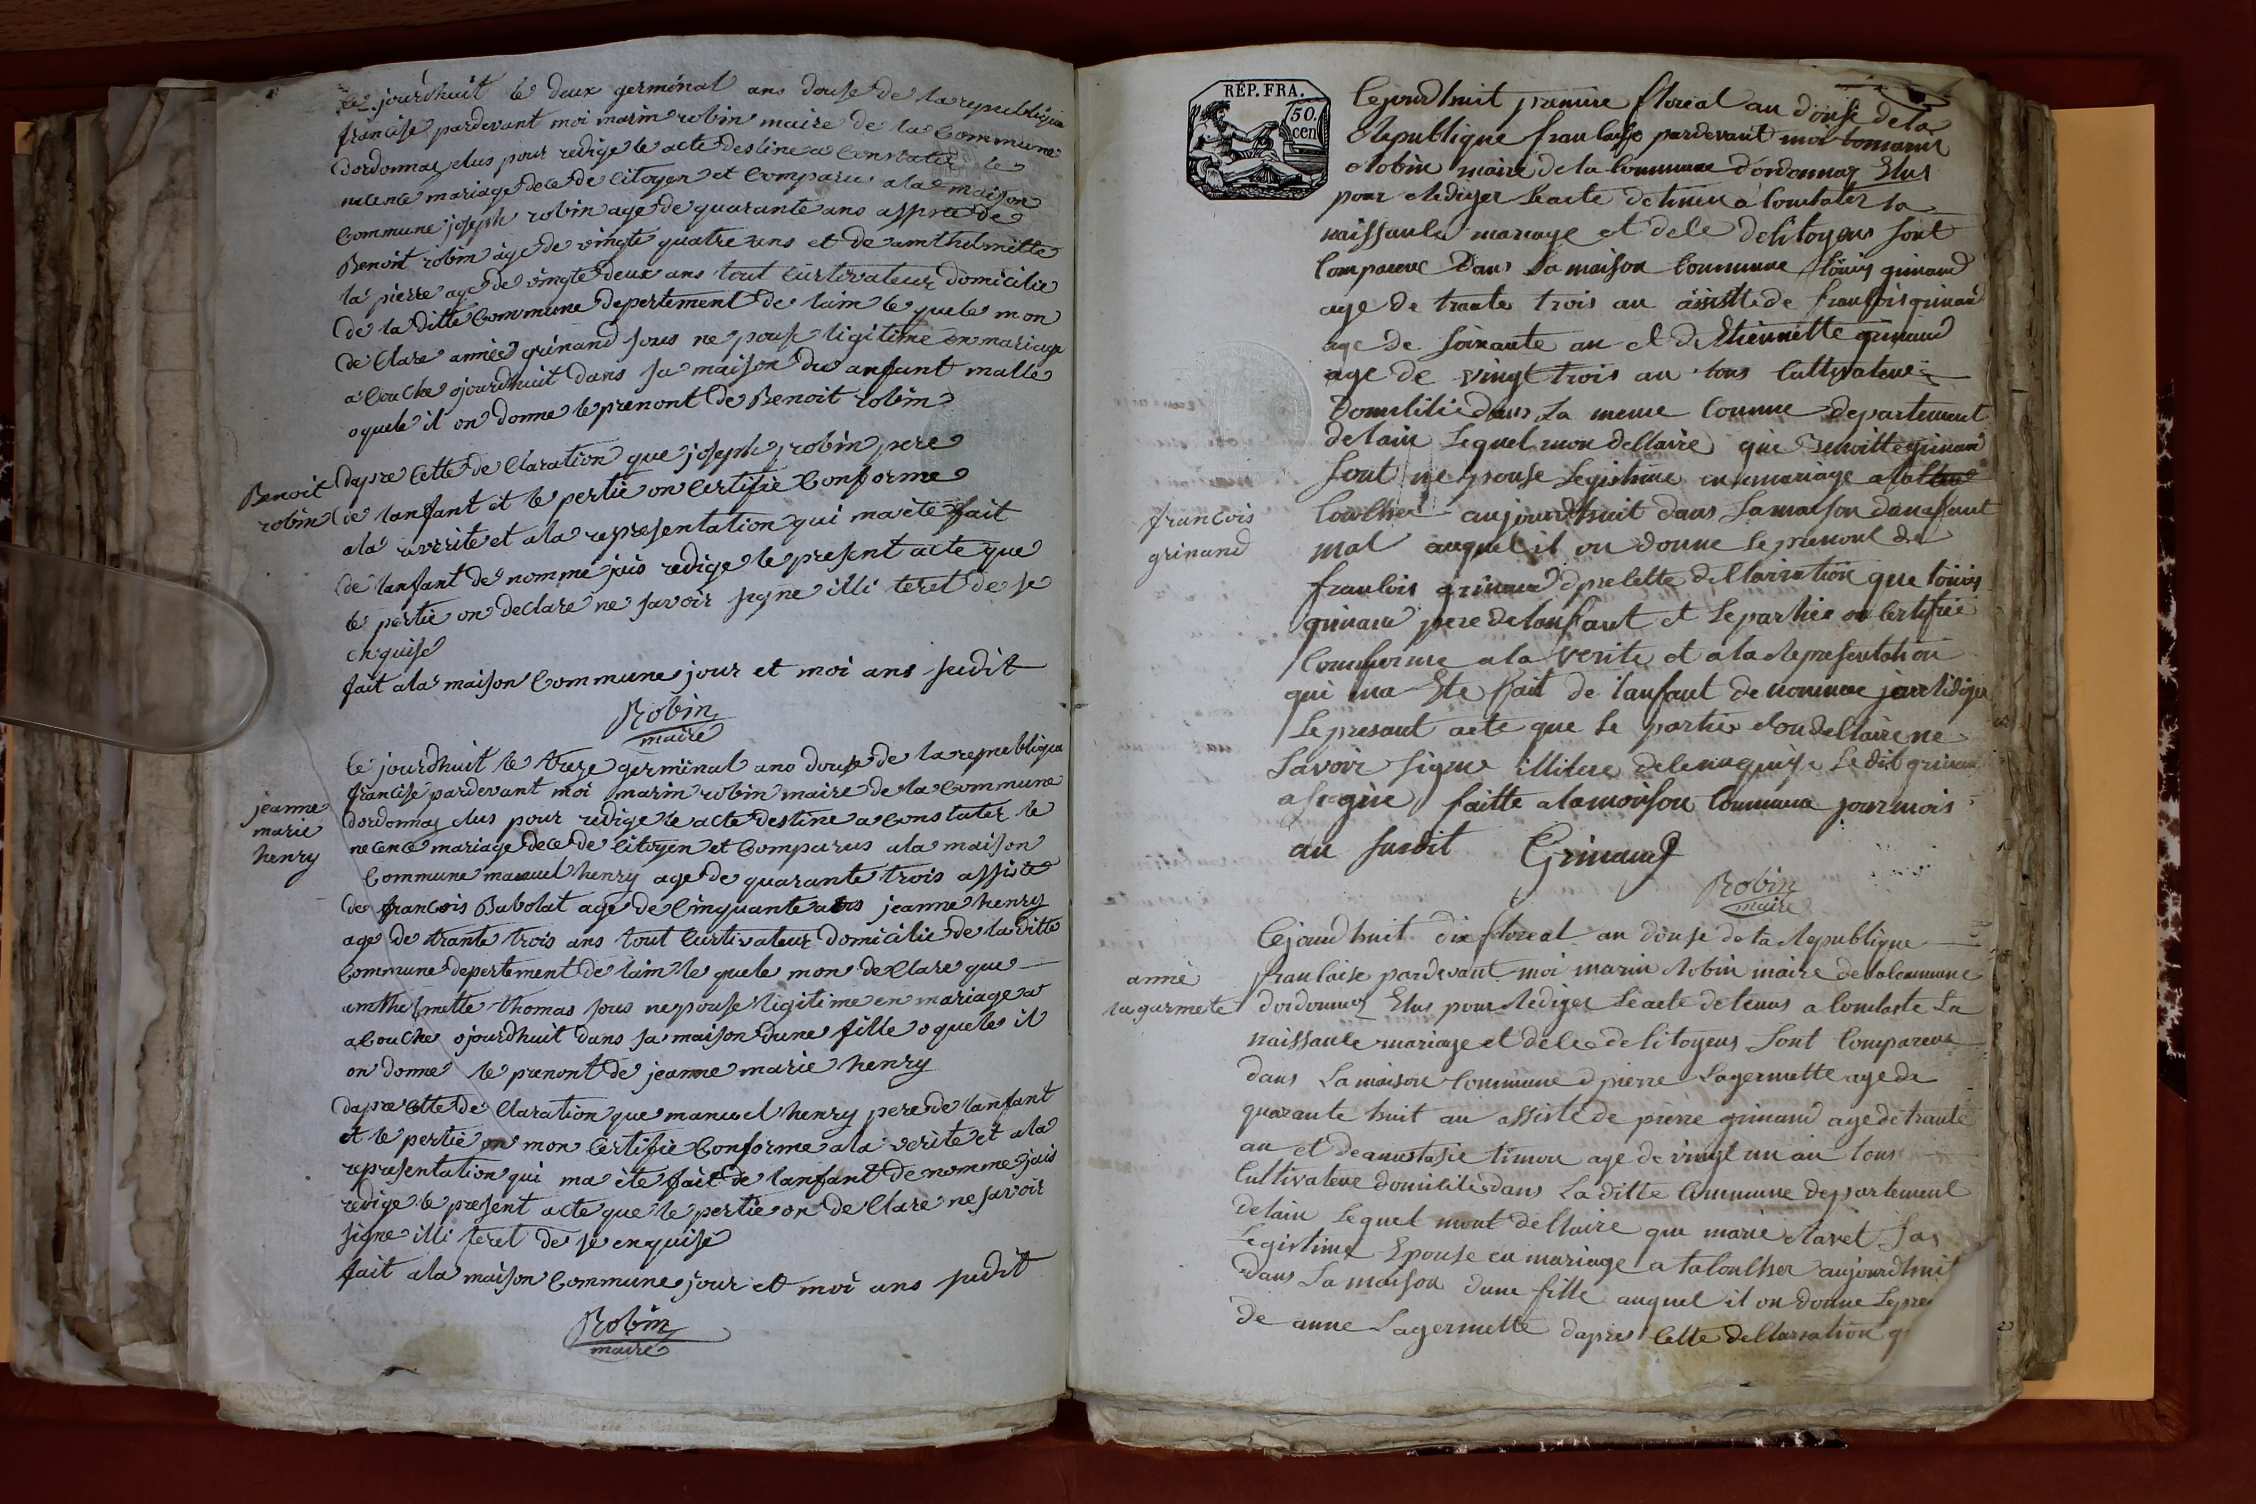 Ce jourdhuit le deux germinal ans douse de la republique
francise pardevant moi marin robin maire de la Commune
dordonnas elus pour redige le acte destine a Constatér le
necence mariage dece de Citoyen et Comparu a la maison
Commune joseph robin age de quarante ans assiste de
Benoit robin age de vingte quatre ans et de
la pierre age de vingte deux ans tout Curtivateur domicilie
de la ditte Commune depertement de lain le quele mon
de Clare année grinand sous ne pouse ligitime en mariage
a Couche ojourdhuit dans sa maison du anfant malle
oquele il on donne le prenont de Benoit robin
Benoit
robin
dapre Cette de Claration que joseph robin pere
de lanfant et le pertie on Certifie Conforme
ala verite et ala representation qui ma ete fait
de lanfant de nomme jais redige le present acte que
le pertie on declare ne savoir signe illi teret de se
enquise
fait ala maison Commune jour et moi ans sudit
Robin
maire
jeanne
marie
henry
Ce jourdhuit le treze germinal ans douse de la republique
francise pardevant moi marin robin maire de la Commune
dordonnas elus pour redige le acte destine a Constater le
necence mariage dece de Citoyen et Comparus ala maison
Commune manuel henry age de quarante trois assiste
de francois Babolat age de Cinquante ans jeanne henry
age de trante trois ans tout Curtivateur domicilie de la ditte
Commune depertement de lain le quele mon de Clare que
amthelmette thomas sous ne pouse ligitime en mariage a
aCouche ojourdhuit dans sa maison dune fille oquele il
on donne le prenont de jeanne marie henry
dapre Cette de Claration que manuel henry pere de lanfant
et le pertie on mon Certifie Conforme ala verite et ala
representation qui ma ete fait de lanfant de nomme jais
redige le present acte que le pertie on de Clare ne savoir
signe illi teret de se enquise
fait ala maison Commune jour et moi ans sudit
Robin
maire
RÉP. FRA.
50.
cen
Cejourdhuit premire floreal an douse de la
Republique francaise pardevant moi
Robin maire de la Commune dordonnaz Elus
pour Rediger leacte detinee a Constater la
naissance mariage et dece de Citoyens sont
Compareue dans la maison Commune louis grinand
age de trante trois an assiste de francois grinand
age de soixante an et de Etiennette grinand
age de vingt trois an tous Cultivateur
domicilie dans la meme Comune departement
de lain Lequel mon declaire que Benoitte grinand
sont ne pouse Legistime en mariage
Coucher aujourdhuit dans sa maison danafant
mal auquel il on donne le prenont de
francois
grinand
francois grinand dpre cette dellaration que louis
grinand pere de lanfant et le partie on Certifie
Comforme ala verite et ala Representation
qui ma Ete fait de lanfant de nomme jairRediger
le presant acte que le partie on dellaire ne
savoir signe illitere Le dit grinand
a signe faitte alamaison Commune jour mois
an susdit
Grinand
Robin
maire
Cejourdhuit dix floreal an douse de la Republique
anne
lagurmete
francaise pardevant moi marin Robin maire de la Commune
dordonnaz Elus pour Rediger leacte detenus a Constaste La
naissance mariage et dece de Citoyens sont Compareue
dans La maison Commune pierre Lagermette age de
quarante huit an assiste de pierre grinand age de trante
an et de anastasie timon age de vingt un an tous
Cultivateur domicilie dans La ditte Commune departement
delain Lequel mont dellaire que marie
Legistime Epouse en mariage aujourdhuit
dans La maison dune fille auquel il on donne Lepre
de anne Lagermette dapres Cette dellaration q